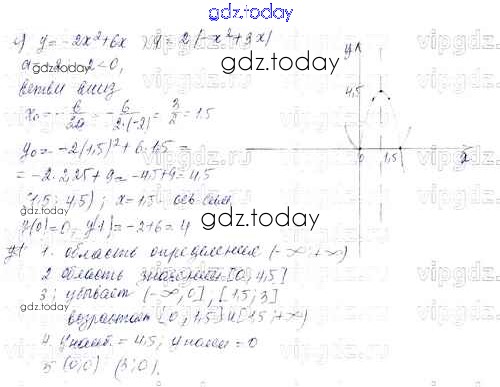 gdz.today
в) y = -2x² + 6x y = 2(-x² + 3x)
a = -2 -2 < 0,
ветви вниз
gdz.today
x₀ = -b/2a = -6/2·(-2) = 3/2 = 1.5
y₀ = -2(1,5)² + 6·1.5 =
= -2·2,25 + 9 = -4.5 + 9 = 4,5
(1.5; 4,5); x = 1.5 - ось сим.
gdz.today
y(0) = 0, y(1) = -2 + 6 = 4
y
4,5
0
1,5
1. область определения (-∞; +∞)
2 область значений [0; 4,5]
3. убывает (-∞, 0], [1,5; 3]
возрастает [0, 1.5] и [1,5; +∞)
4. y наиб. = 4,5; y наим = 0
5 (0;0) (3;0).
gdz.today
vipgdz.ru